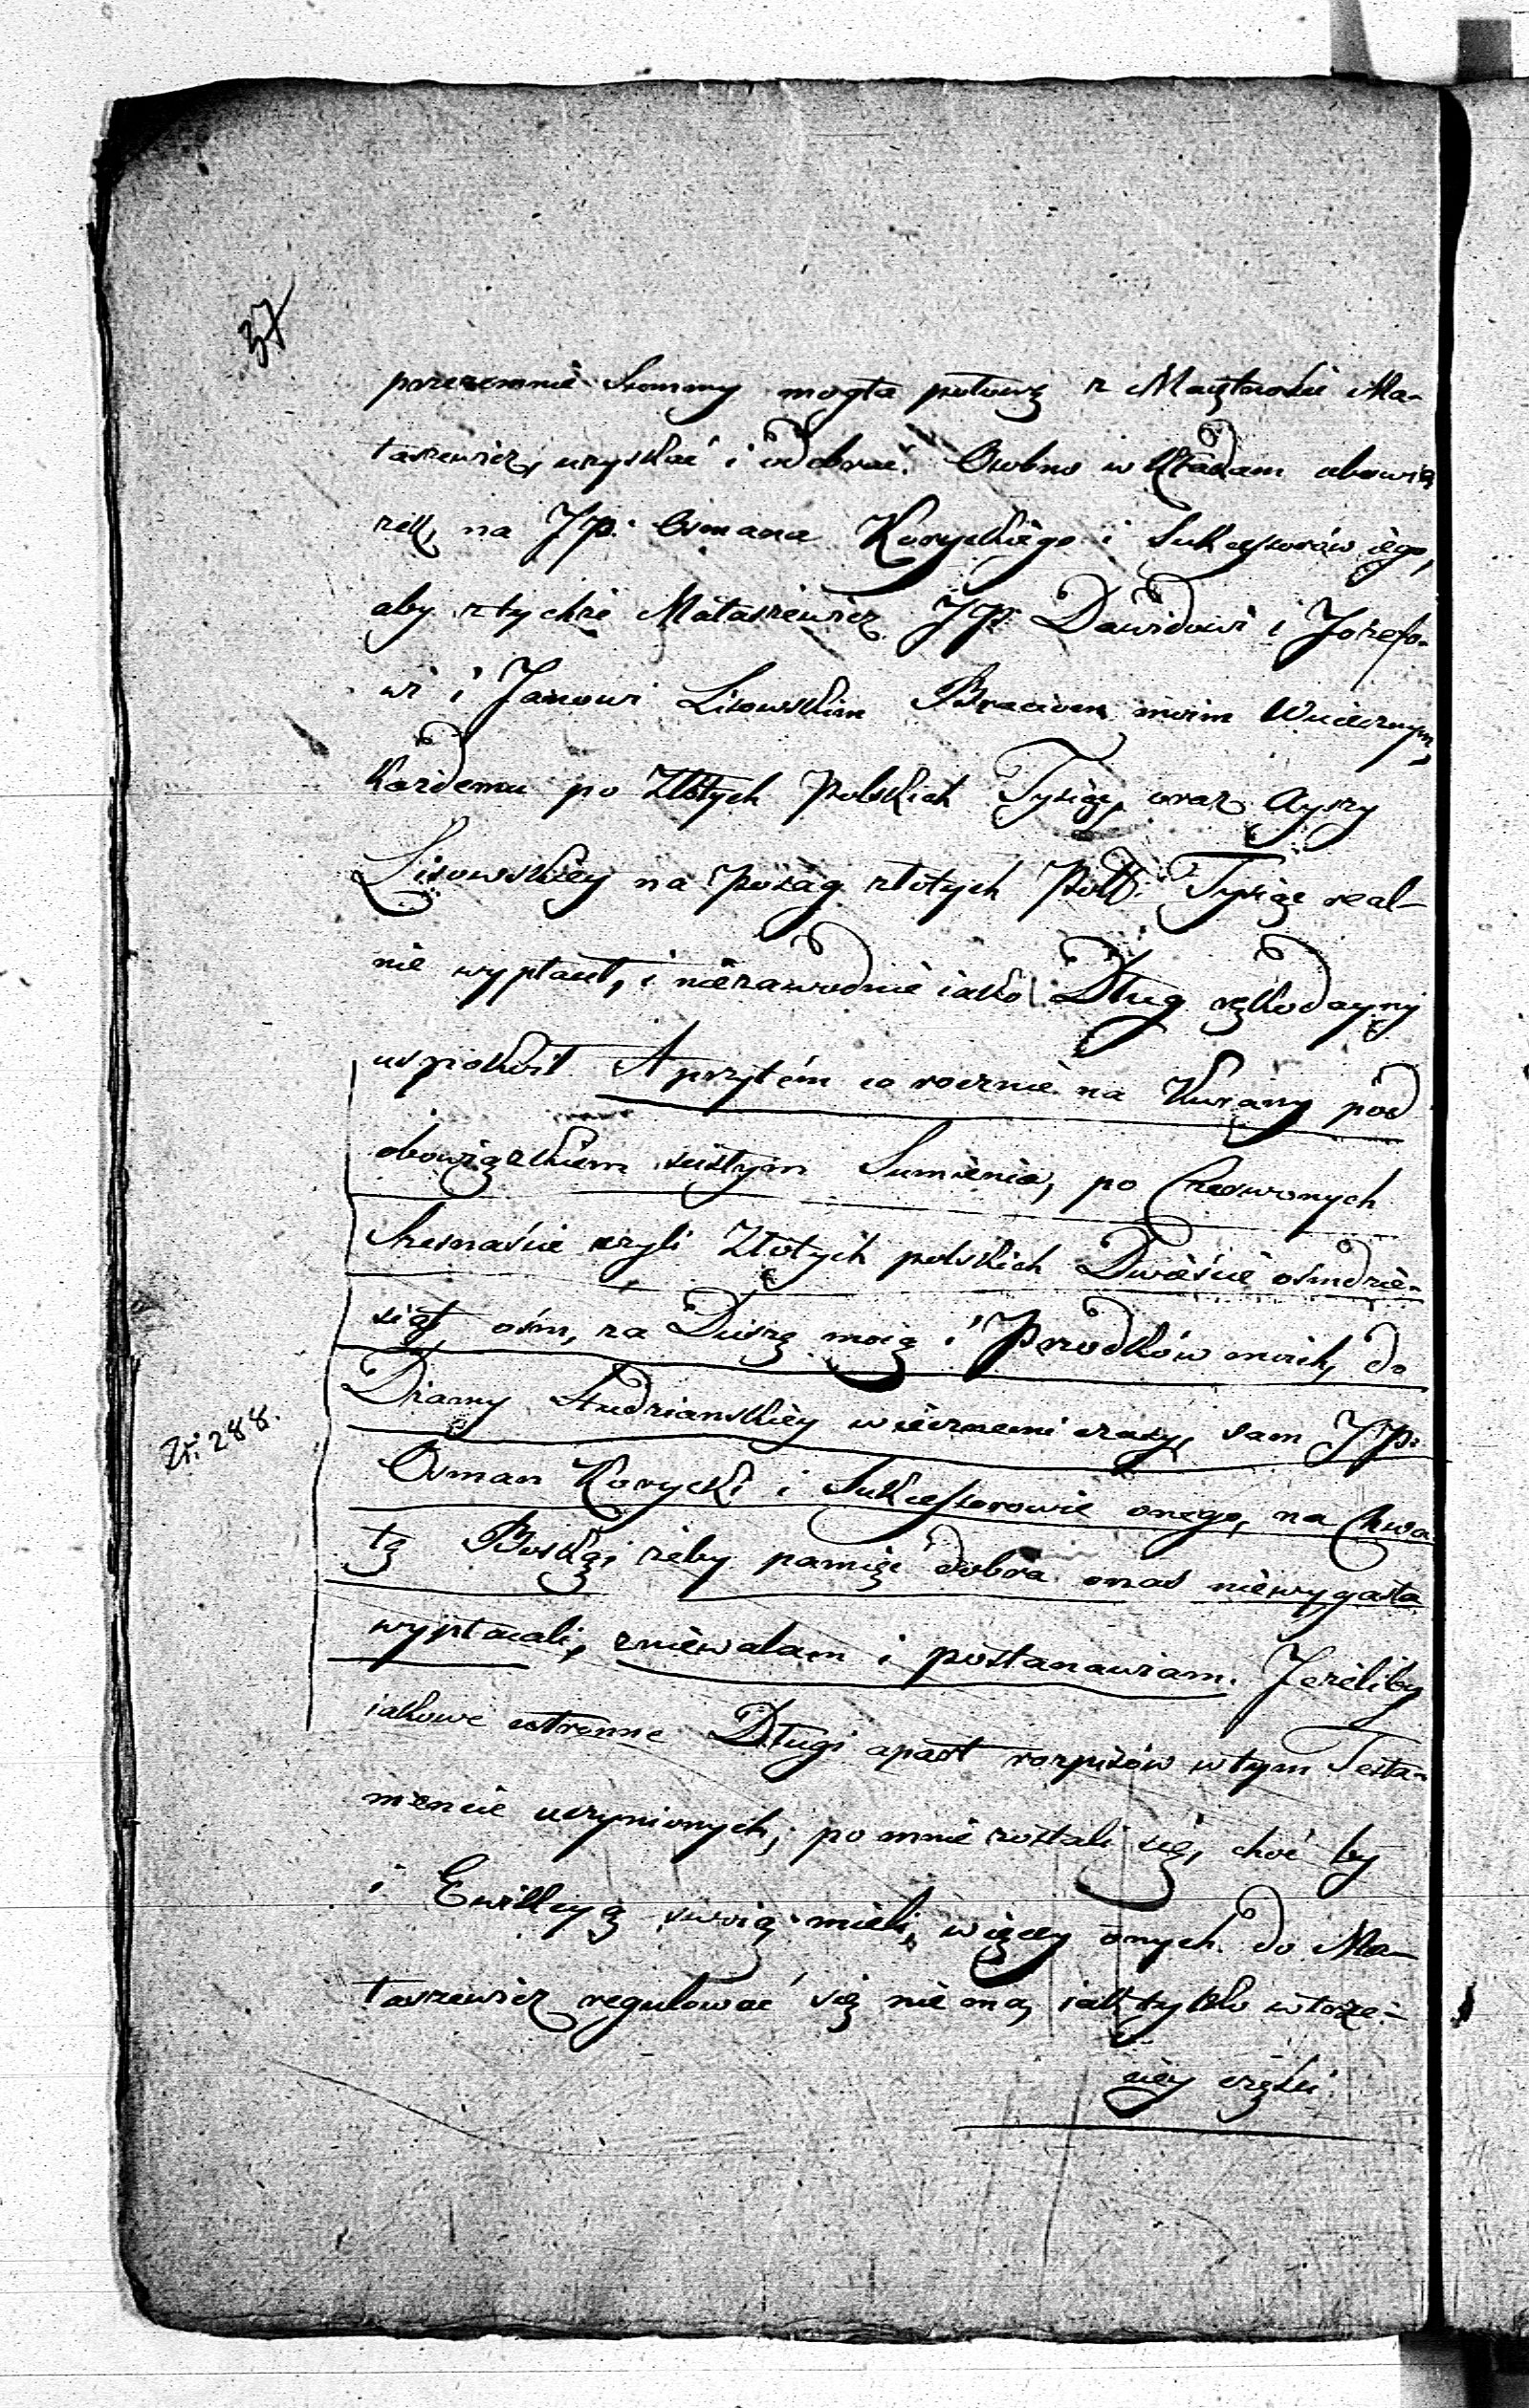 37
przezemnie Summy mogła połowę z Maiętności Ma-
taszewicz, uzyskać i odebrać. Osobno wkładam obowią
zek, na JP. Osmana Koryckiego i Sukcessorów iego,
aby z tychże Mataszewicz JP. Dawidowi i Jozefo-
wi i Janowi Lisowskim Braciom moim Wuiecznym,
każdemu po Złotych Polskich Tysiąc, oraz Ayszy
Lisowskiey na Posag złotych Polb: Tysiąc real-
nie wypłacił, i niezawodnie iako Dług ręko dayny
uspokoił A przytém co rocznie na Kurany pod
obowiązkiem ścisłym Sumienia, po Czerwonych
Szesnaście czyli Złotych polskich Dwieście ośmdzie-
siąt ośm, za Duszę moię i Przodków moich, do
Dżamy Studzianskiey wiecznemi czasy, sam JP.
Zł: 288.
Osman Korycki i Sukcessorowie onego, na Chwa
łę Boską, żeby pamięć dobra onas niewygasła
wypłacali, zniewalam i postanawiam. Jeżeliby
iakowe ustronne Długi apart rozpisów wtym Testa-
mencie uczynionych, po mnie zostali się, choć by
i Ewikcyą swoią mieli, więcey onych do Ma-
taszewicz regulować się nie ma, iak tylko wtrze-
ciey części